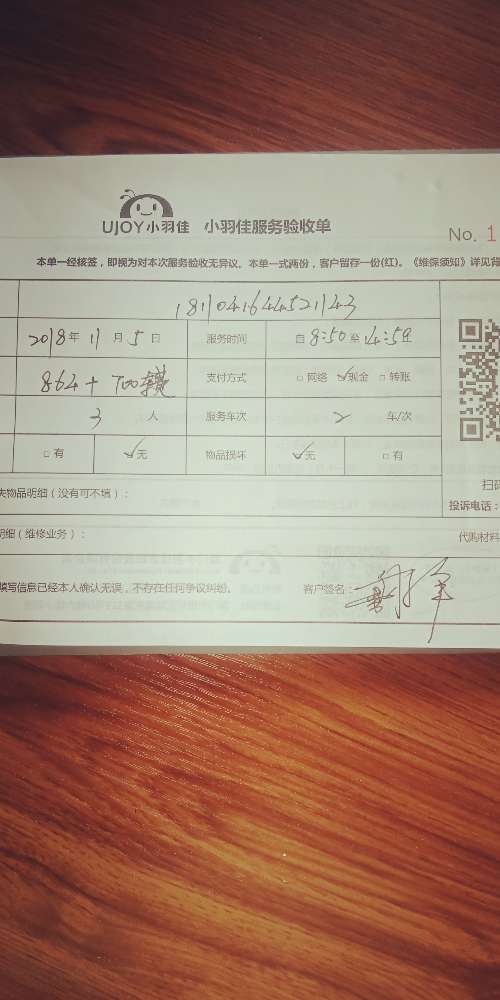 UJOY小羽佳 小羽佳服务验收单
No. 1
本单一经核签，即视为对本次服务验收无异议。本单一式两份，客户留存一份(红)。《维保须知》详见背
2018年11月5日 服务时间 自8:50至14:59
864+700 支付方式 □网络 ☑现金 □转账
3 人 服务车次 2 车/次
□有 ☑无 物品损坏 ☑无 □有
失物品明细（没有可不填）： 扫码
投诉电话：
明细（维修业务）： 代购材料
填写信息已经本人确认无误，不存在任何争议纠纷。 客户签名：